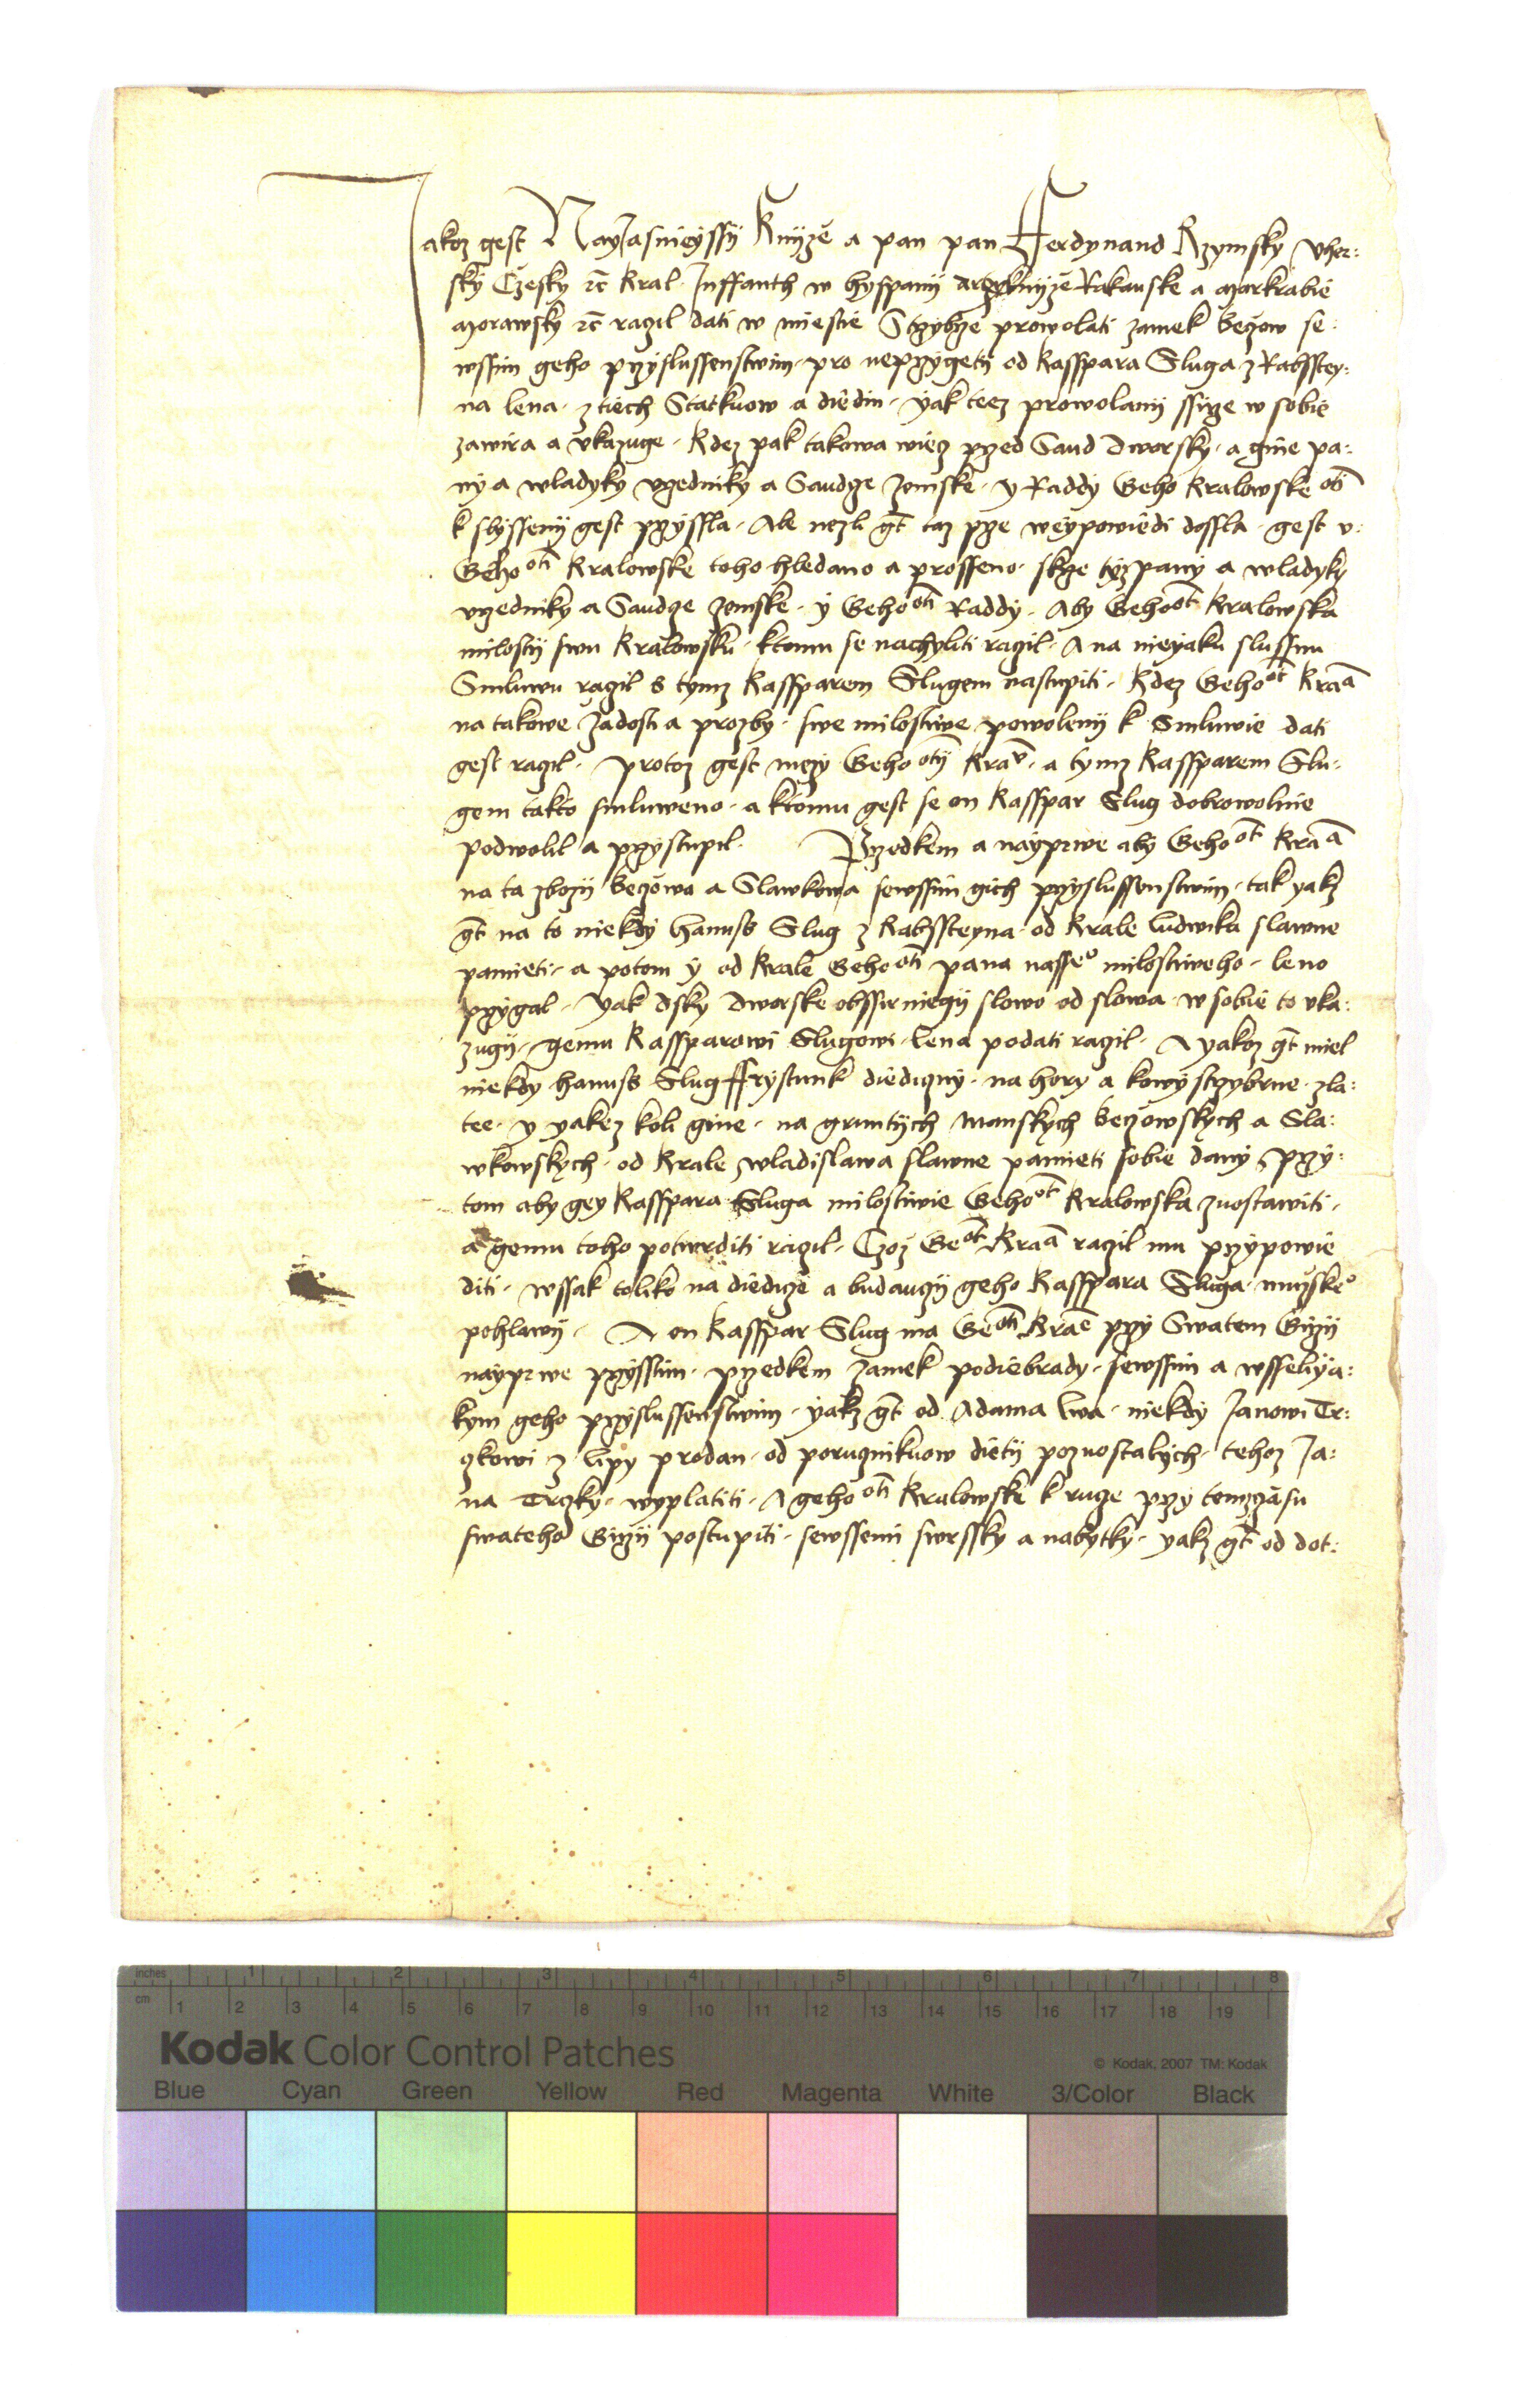 Jakoz gest Nayjasnieyssy Knijze a pan pan Ferdynand Rzymsky Vher:
sky Czesky ꝛc̄ Kral Inffanth w hyspanij arzyknijze Rakauske a Markrabie
Morawsky ꝛc̄ razil dati w miestie Strzybrze prowolati zamek beczow se:
wssim geho przyslussenstwim pro neprzygeti od Kasspara Sluga z Rabsstey:
na lena z tiech Statkuow a diedin yak teez prowolanij ssirze w sobie
zawira a vkazuge Kdez pak takowa wiecz przed Saud dworsky a gine pa:
ny a wladyky vrzedniky a Saudze zemske y Raddy Geho kralowske oti
k slyssenij gest przyssla Ale nezli gt̄ taz prze weypowiedi dossla gest v:
Geho oti Kralowske toho hledano a prosseno skrze tyz pany a wladyky
vrzedniky a Saudze zemske y Geho oti Raddy Aby Geho ot Kralowska
milostij swu kralowsku ktomu se nachyliti razil A na nieyaku slussnu
Smluwu razil s tymz Kassparem Slugem nastupiti Kdez Geho ot Kraa
na takowe zadosti a prozby swe milostiwe powolenij k Smluwie dati
gest razil Protoz gest mezy Geho otij Krau a tymz Kassparem Slu:
gem takto smluweno a ktomu gest se on Kasspar Slug dobrowolnie
podwolil a przystupil Przedkem a nayprwe aby Geho ot Kraa
na ta zbozij beczowa a Slawkowa sewssim gich przyslussenstwim tak yakz
gt̄ na to niekdy hanuss Slug z Rabssteyna od Krale ludwika slawne
pamieti a potom y od Krale Geho oti pana nasseo milostiweho leno
przygal Yak dsky dworske obssirniegij slowo od slowa w sobie to vka:
zugij gemu Kassparowi Slugowi lena podati razil A yakoz gt̄ miel
niekdy hanuss Slug ffrystunk diediczny na hory a kowy strzybrne zla:
tee y yakez koli gine na gruntych manskych beczowskych a Sla:
wkowskych od Krale wladislawa slawne pamieti sobie dany przy:
tom aby gey Kasspara Sluga milostiwie Geho ot Kralowska zuostawiti
a gemu toho potwrditi razil Czoz Geot Kraa razil mu przypowie
diti wssak toliko na diedicze a buduczij geho Kasspara Sluga muzskeo
pohlawij A on Kasspar Slug ma Geoti Krae przy Swatem Girzij
nayprwe przysstim przedkem zamek podiebrady sewssim a wsselija:
kym geho przyslussenstwim yakz gt̄ od Adama lwa niekdy Janowi Tr:
czkowi z lipy prodan od porucznikuow dietij pozuostalych tehoz Ja:
na Trczky wyplatiti A geho oti Kralowske k rucze przy temz czasu
swateho Girzij postupiti sewssemi swrssky a nabytky yakz gt̄ od dot:
inches 1 2 3 4 5 6 7 8
cm 1 2 3 4 5 6 7 8 9 10 11 12 13 14 15 16 17 18 19
Kodak Color Control Patches
© Kodak, 2007 TM: Kodak
Blue Cyan Green Yellow Red Magenta White 3/Color Black